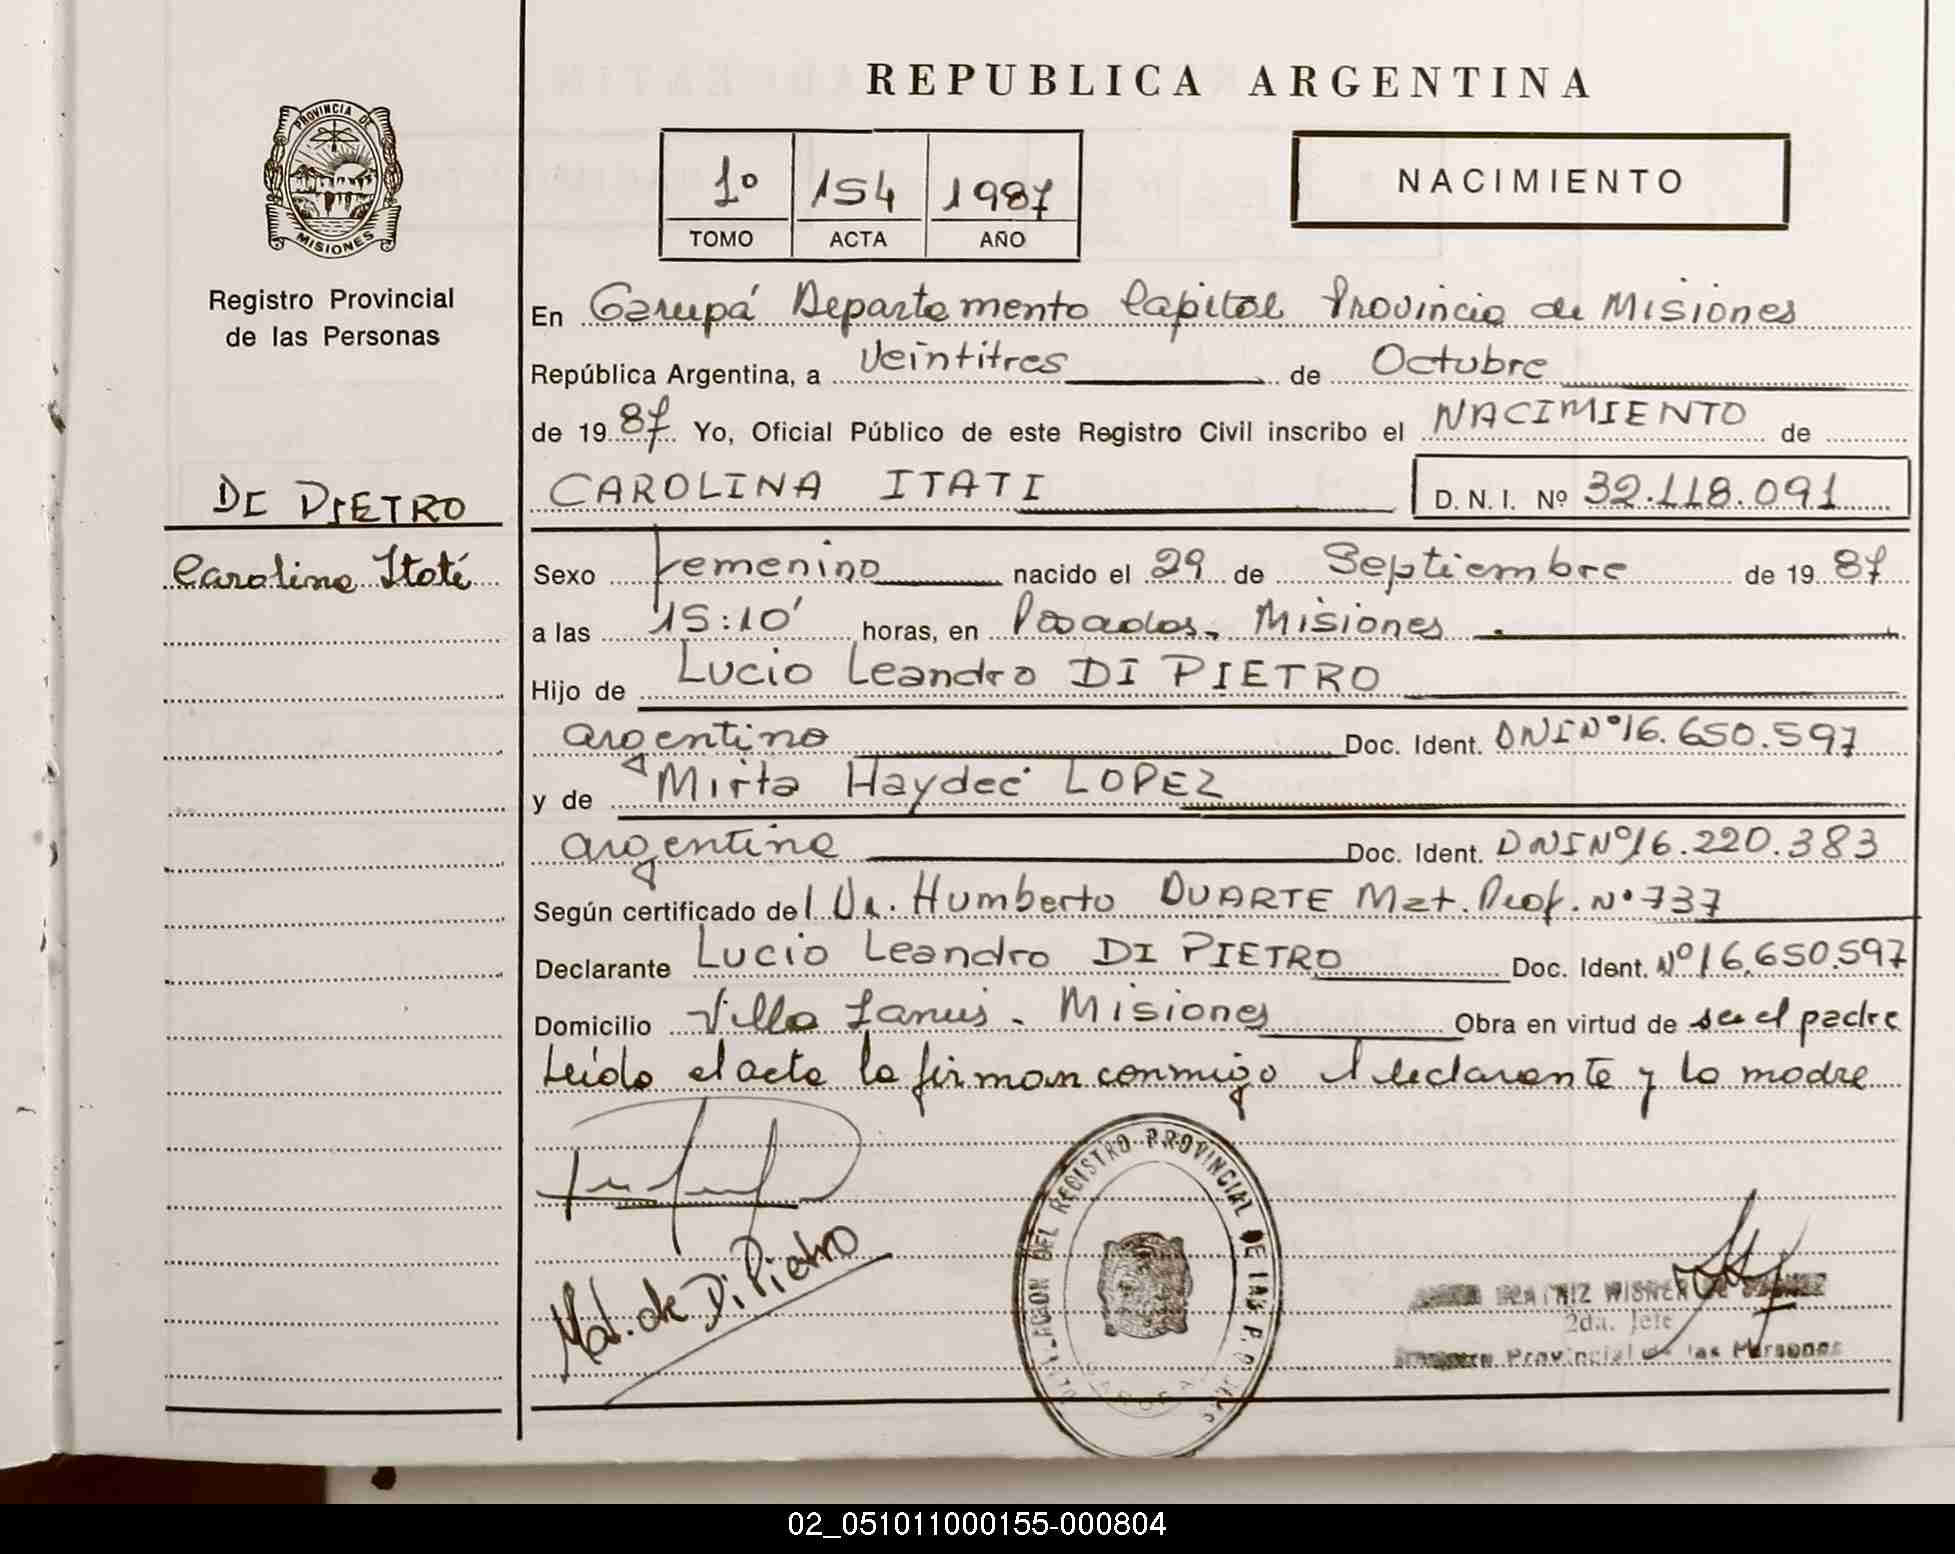 REPUBLICA ARGENTINA
PROVINCIA DE
MISIONES
Registro Provincial
de las Personas
1º 154 1987
TOMO ACTA AÑO
NACIMIENTO
En Garupá Departamento Capital Provincia de Misiones
República Argentina, a Veintitres de Octubre
de 1987 Yo, Oficial Público de este Registro Civil inscribo el NACIMIENTO de
DI PIETRO
Carolina Itatí
CAROLINA ITATI D. N. I. Nº 32.118.091
Sexo Femenino nacido el 29 de Septiembre de 1987
a las 15:10' horas, en Posadas, Misiones
Hijo de Lucio Leandro DI PIETRO
argentino Doc. Ident. DNI Nº 16.650.597
y de Mirta Haydeé LOPEZ
argentina Doc. Ident. DNI Nº 16.220.383
Según certificado del Dr. Humberto DUARTE Mat. Prof. Nº 737
Declarante Lucio Leandro DI PIETRO Doc. Ident. Nº 16.650.597
Domicilio Villa Lanus. Misiones Obra en virtud de ser el padre
Leída el acta la firman conmigo el declarante y la madre
de Di Pietro
DEL REGISTRO PROVINCIAL DE LAS
BEATRIZ WISNER DE
2da. Jefe
Provincial de las Personas
02_051011000155-000804